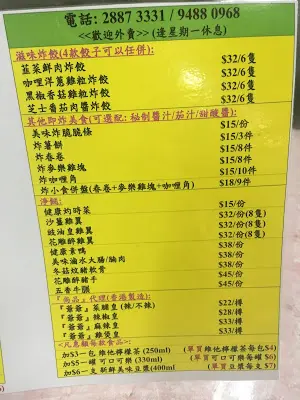 電話: 2887 3331 / 9488 0968
<<歡迎外賣>> (逢星期一休息)
滋味炸餃(4款餃子可以任併):
韮菜鮮肉炸餃 $32/6隻
咖哩洋蔥雞粒炸餃 $32/6隻
黑椒香菇雞粒炸餃 $32/6隻
芝士番茄肉醬炸餃 $32/6隻
其他即炸美食(可選配: 秘制醬汁/茄汁/甜酸醬):
美味炸脆脆條 $15/份
炸薯餅 $15/3件
炸春卷 $15/3件
炸麥樂雞塊 $15/8件
炸咖喱角 $15/10件
炸小食併盤(春卷+麥樂雞塊+咖喱角) $18/9件
淨餸:
健康灼時菜 $15/份
沙薑雞翼 $32/份(8隻)
豉油皇雞翼 $32/份(8隻)
花雕醉雞翼 $32/份(8隻)
健康素鴨 $38/份
美味滷水大腸/胸肉 $38/份
冬菇炆豬軟骨 $45/份
花雕醉豬手 $45/份
五香牛𦟌 $45/份
『尚品』代理(香港製造):
『爺爺』菜脯皇 (辣/不辣) $22/樽
『爺爺』辣椒皇 $28/樽
『爺爺』麻辣皇 $33/樽
『爺爺』雞煲皇 $33/樽
<凡惠顧每款食品>:
加$3一包 維他檸檬茶 (250ml) (單買維他檸檬茶每包$4)
加$5一罐 可口可樂 (330ml) (單買可口可樂每罐 $6)
加$6一支 新鮮美味豆漿(400ml (單買豆漿每支 $7)